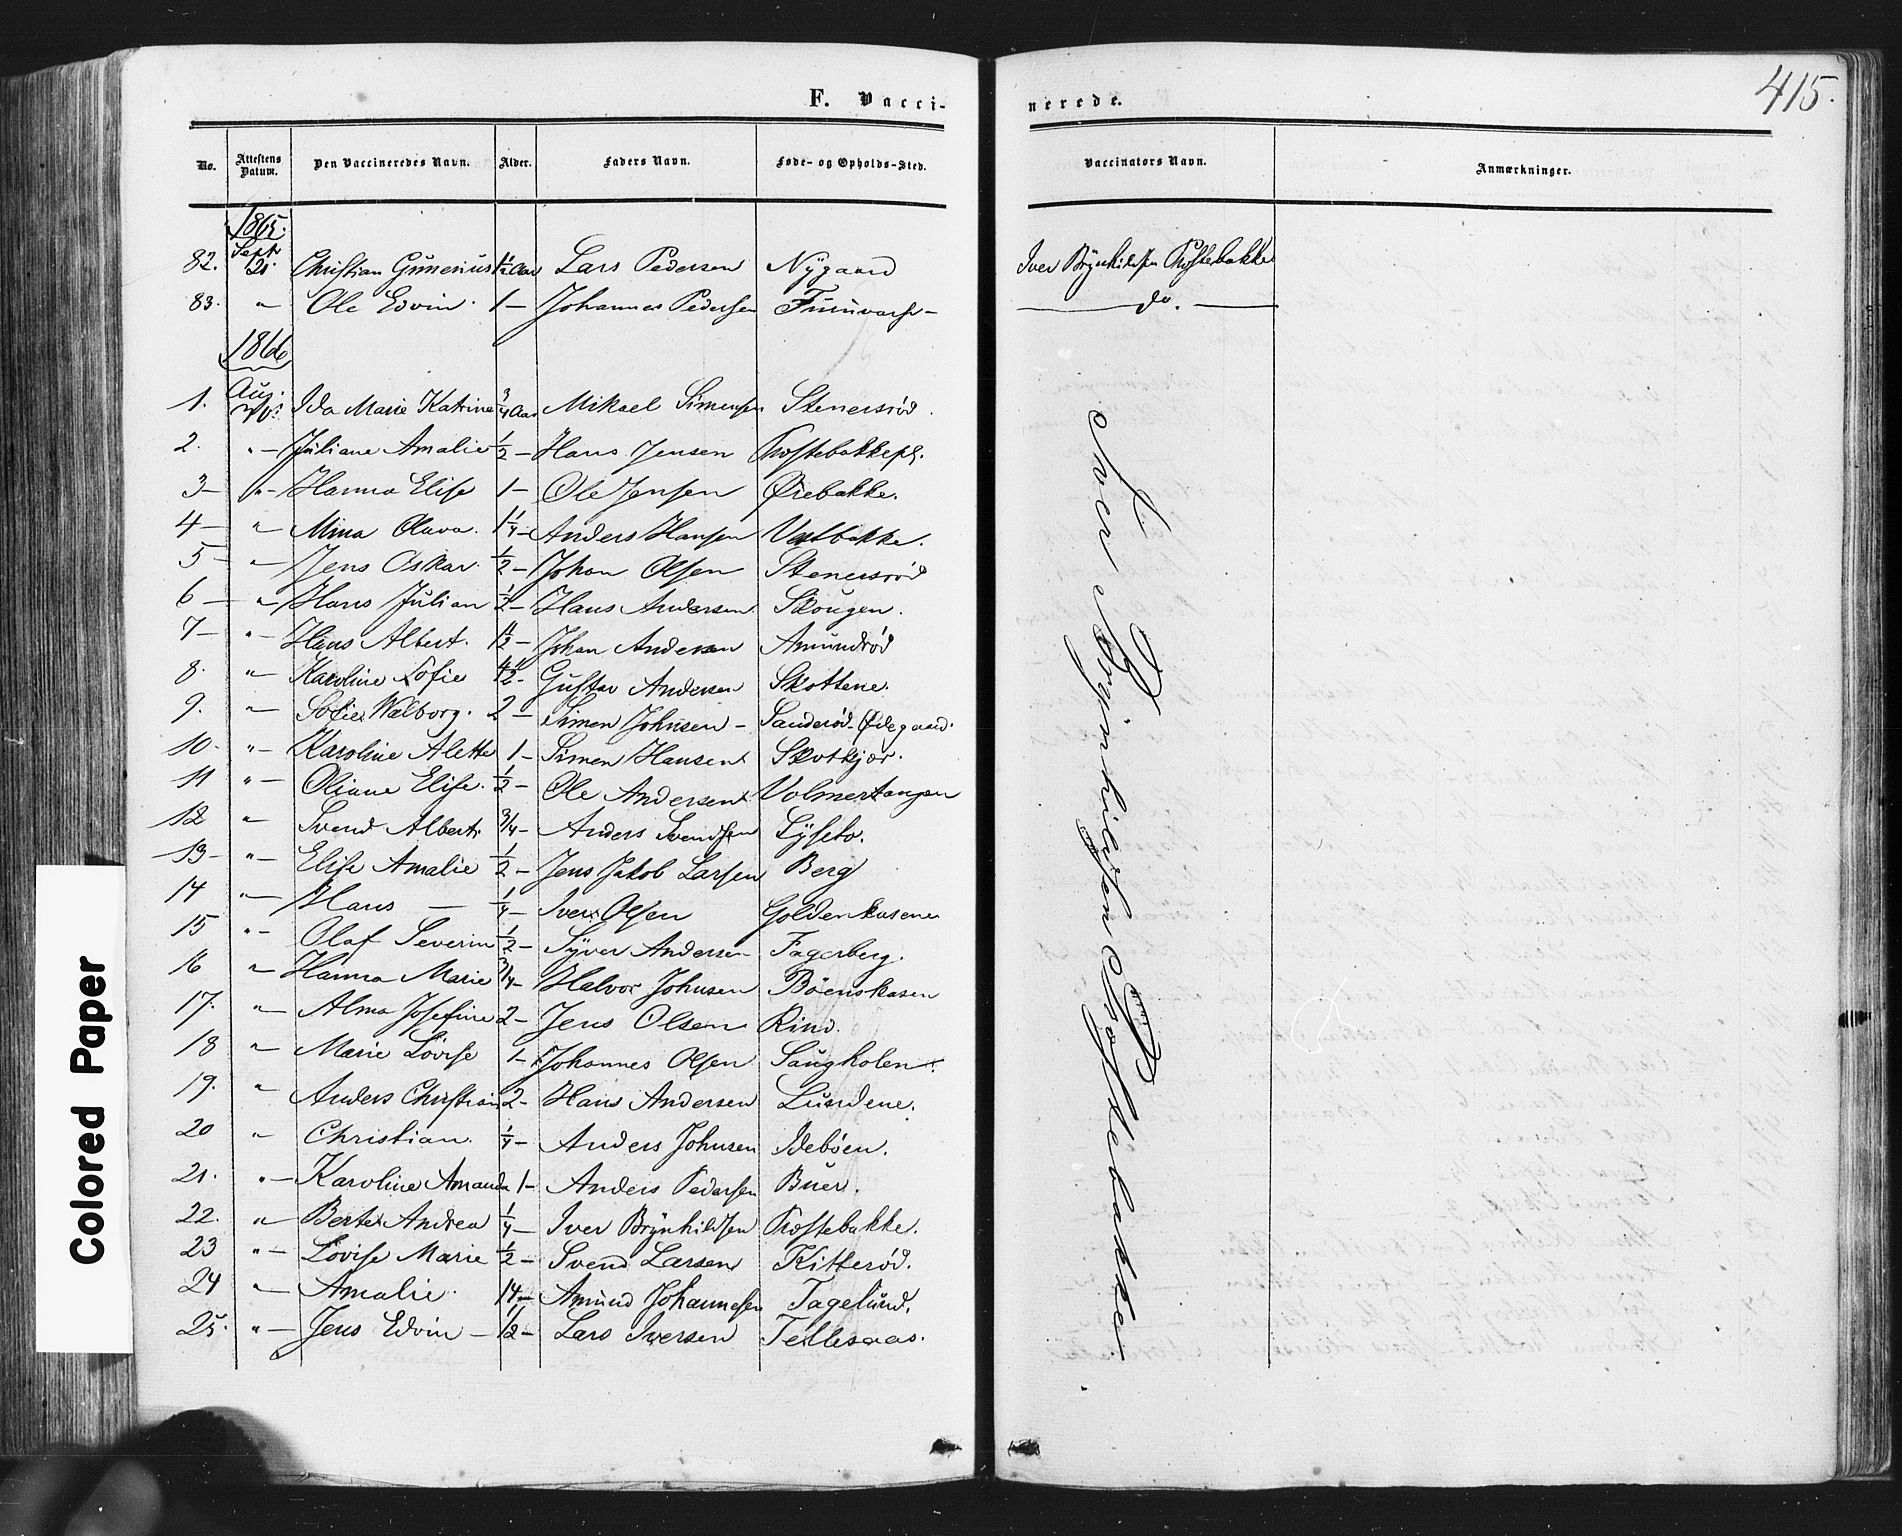 F. Vacci-
nerede.
415.
No. Attestens Datum. Den Vaccineredes Navn. Alder. Faders Navn. Føde- og Opholds-Sted. Vaccinators Navn. Anmærkninger.
1865.
82. Sept. 21. Christian Gunerius 1½ Aar Lars Pedersen Nygaard Iver Brynhildsen Tostebakke
83. " Ole Edvin. 1 — Johannes Pedersen — do. —
1866
1. Aug. Ida Marie Katrine ¾ Aar Mikael Simensen Stenersrød.
2. " — Juliane Amalie ½ — Hans Jensen Tostebakkepl.
3 — " — Hanna Elise 1 — Ole Jensen Ørebakke.
4 — " Mina Olava. 1¼ — Anders Hansen Vestbakke.
5 — " Jens Oskar. ½ — Johan Olsen Stenersrød
6 — " — Hans Julian ½ — Hans Andersen Skougen.
7 — " — Hans Albert. 1½ — Johan Andersen Amundrød
8. " — Karoline Sofie 4½ - Gustav Andersen Skottene.
9. " — Sofie Walborg. 2 — Simen Johnsen — Sanderød-Ødegaard.
10. " — Karoline Alette 1 — Simen Hansen Skotkjær.
11 " — Oliane Elise. ½ — Ole Andersen Volmertangen
12 " Svend Albert. ¾ — Anders Svendsen Lyseto.
13 — " — Elise Amalie ½ — Jens Jakob Larsen Berg
14 " — Hans — ¼ — Iver Olsen Goldenkasene
15 " — Olaf Severin ½ — Syver Andersen Fagerberg.
16 " — Hanna Marie ¾ — Halvor Johnsen Böenskasen
17. " — Alma Josefine 2 — Jens Olsen Rind.
18 " Marie Lovise 1 — Johannes Olsen Saugkolen.
19. " Anders Christian 2 - Hans Andersen Lundene.
20 " Christian. ¼ — Anders Johnsen Idebøen.
21. " — Karoline Amanda 1 — Anders Pedersen Buer.
22. " Berte Andrea ¼ — Iver Brynhildsen Tostebakke.
23 " — Lovise Marie ½ — Svend Larsen Kitterød.
24 " — Amalie. 14 — Amund Johannesen Fagelund.
25. " — Jens Edvin — 1½ — Lars Iversen Tellesaas.
Iver Brynhildsen Tostebakke
Colored Paper